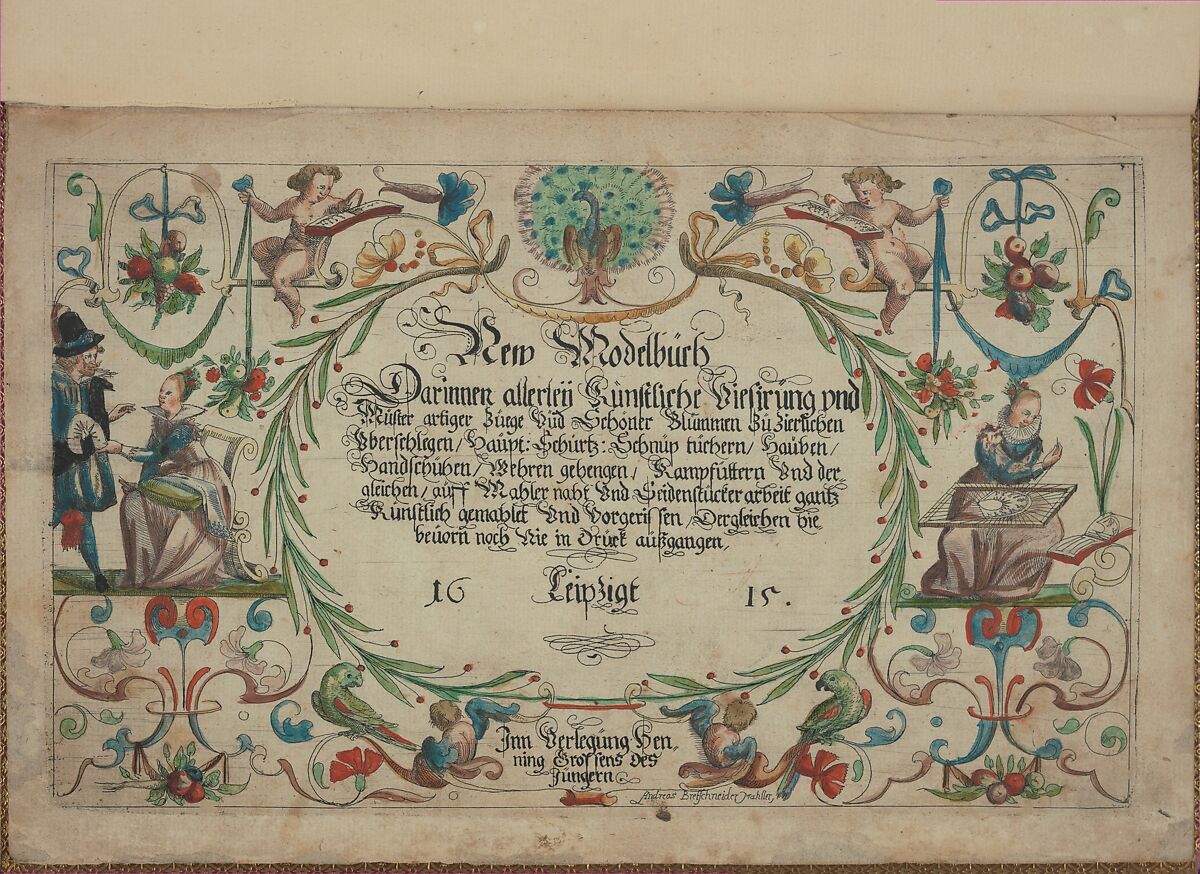 New Modelbüch
Darinnen allerleÿ Künstliche Viesirüng vnd
Müster artiger Züege Vnd Schöner Blümmen Zü Zierlichen
Vberschlegen/ Haupt: Schürtz: Schnüp tüchern/ Haüben/
Handschühen/ Wehren gehengen/ Kampfüttern Vnd der,
gleichen/ aüff Mahler naht Vnd Seidenstücker arbeit gantz
Künstlich gemahlet Vnd Vorgerissen, Dergleichen hie
beüorn noch Nie in Drück außgangen,
16 Leipzigt 15.
Jnn Verlegüng Hen,
ning Grossens des
Jüngern
Andreas Bretschneider Mahller,